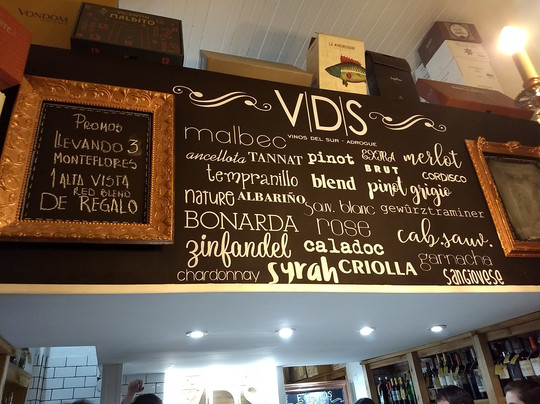 VONDOM
MALDITO
PROMOS
LLEVANDO 3
MONTEFLORES
1 ALTA VISTA
RED BLEND
DE REGALO
V|D|S
VINOS DEL SUR - ADROGUE
malbec
ancellota TANNAT pinot EXTRA BRUT merlot
tempranillo blend pinot grigio CORDISCO
nature ALBARIÑO Sauv. blanc gewürztraminer
BONARDA rose cab. sauv.
zinfandel caladoc garnacha
chardonnay syrah CRIOLLA sangiovese
VDS